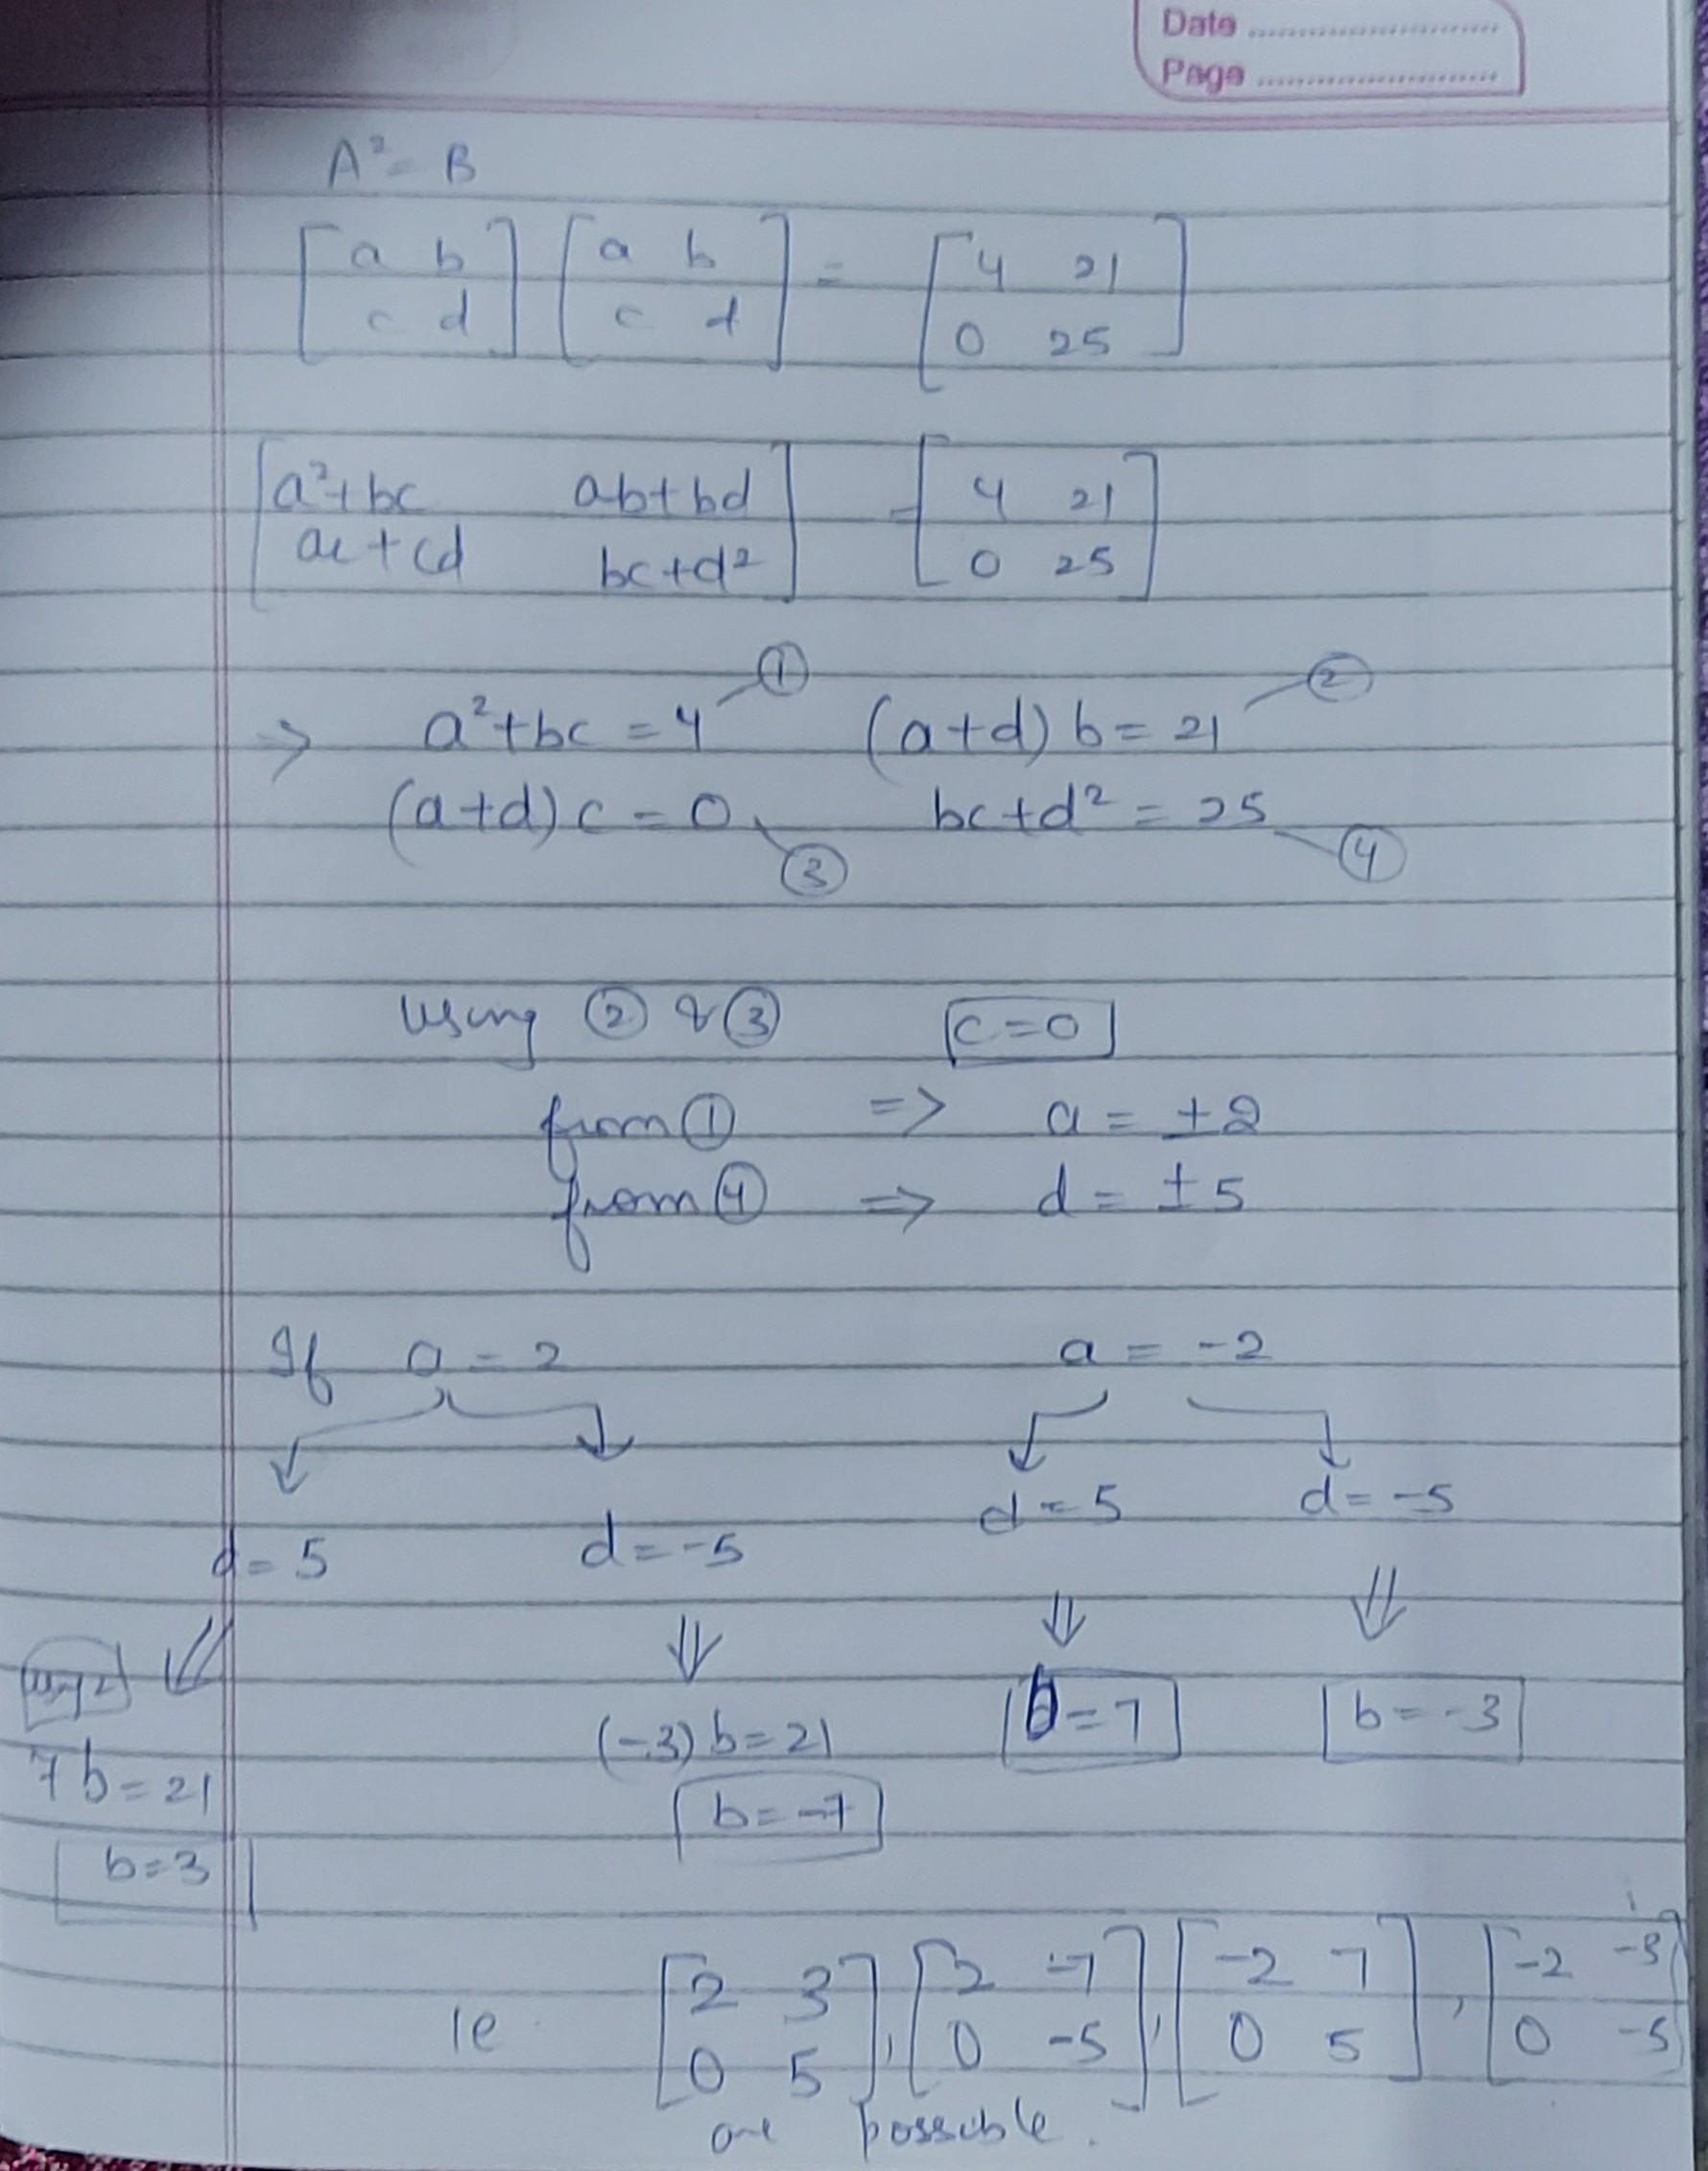 Date
Page
A² = B
[a b; c d] [a b; c d] = [4 21; 0 25]
[a²+bc ab+bd; ac+cd bc+d²] = [4 21; 0 25]
⇒ a²+bc = 4 ① (a+d) b = 21 ②
(a+d) c = 0 ③ bc+d² = 25 ④
Using ② & ③ c=0
from ① => a = ±2
from ④ => d = ±5
If a = 2 a = -2
d = 5 d = -5 d = 5 d = -5
7b = 21 (-3) b = 21 b = 7 b = -3
b = 3 b = -7
ie [2 3; 0 5], [2 -7; 0 -5], [-2 7; 0 5], [-2 -3; 0 -5]
are possible.